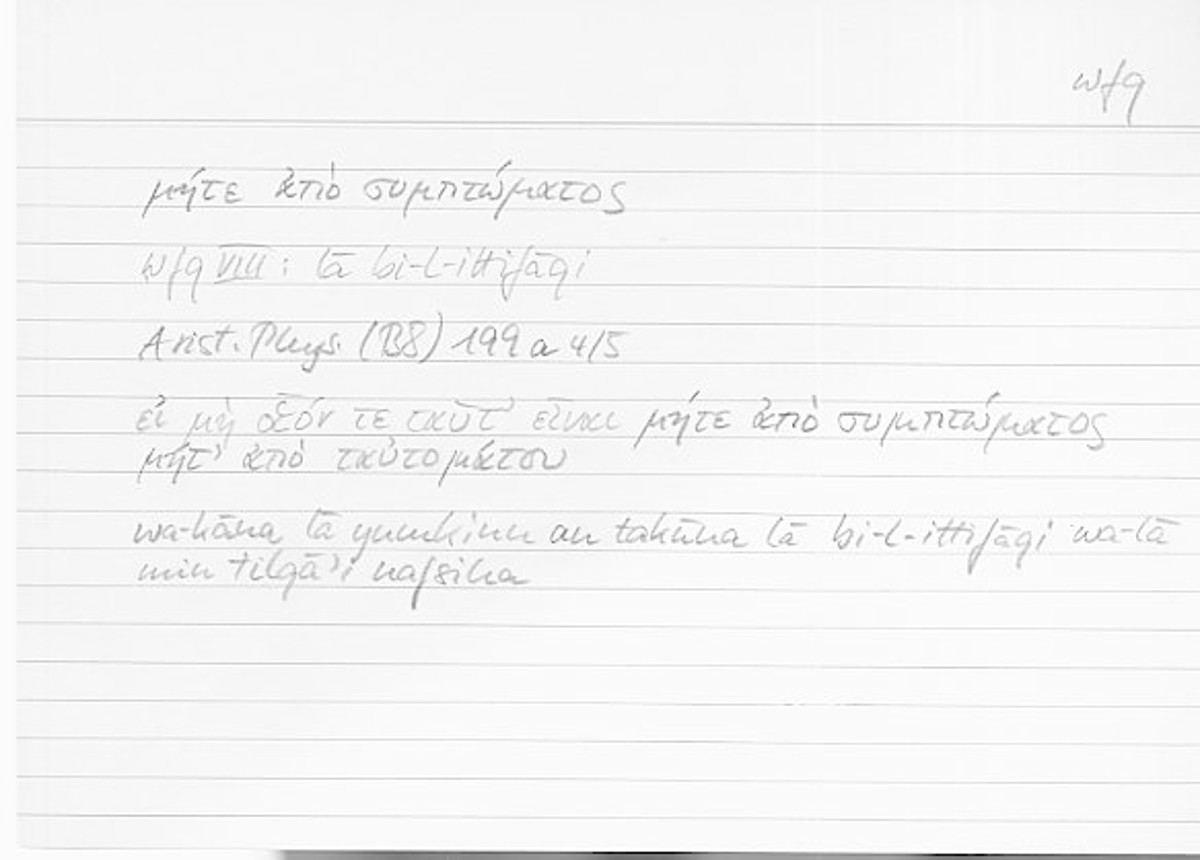 wfq
μήτε ἀπὸ συμπτώματος
wfq VIII: lā bi-l-ittifāqi
Arist. Phys. (B8) 199 a 4/5
εἰ μὴ οἷόν τε ταῦτ' εἶναι μήτε ἀπὸ συμπτώματος
μήτ' ἀπὸ ταὐτομάτου
wa-kāna lā yumkinu an takūna lā bi-l-ittifāqi wa-lā
min tilqā'i nafsiha